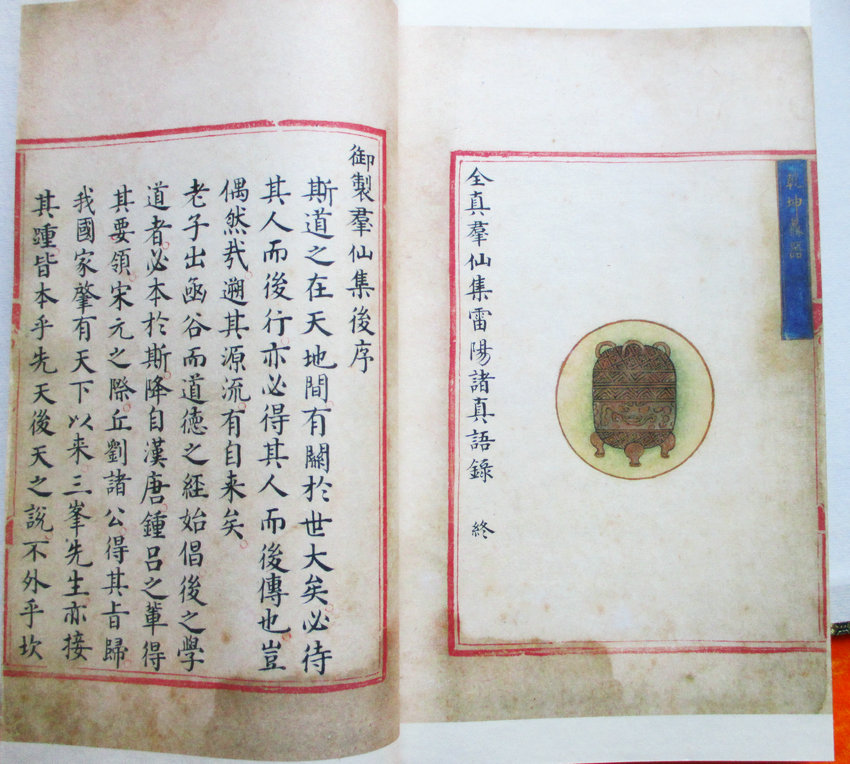 乾坤
全真羣仙集雷陽諸真語錄 終
御製羣仙集後序
斯道之在天地間有關於世大矣必待
其人而後行亦必得其人而後傳也豈
偶然㦲遡其源流有自来矣
老子出函谷而道德之經始倡後之學
道者必本於斯降自漢唐鍾呂之軰得
其要領宋元之際丘劉諸公得其旨歸
我國家肇有天下以来三峯先生亦接
其踵皆本乎先天後天之說不外乎坎